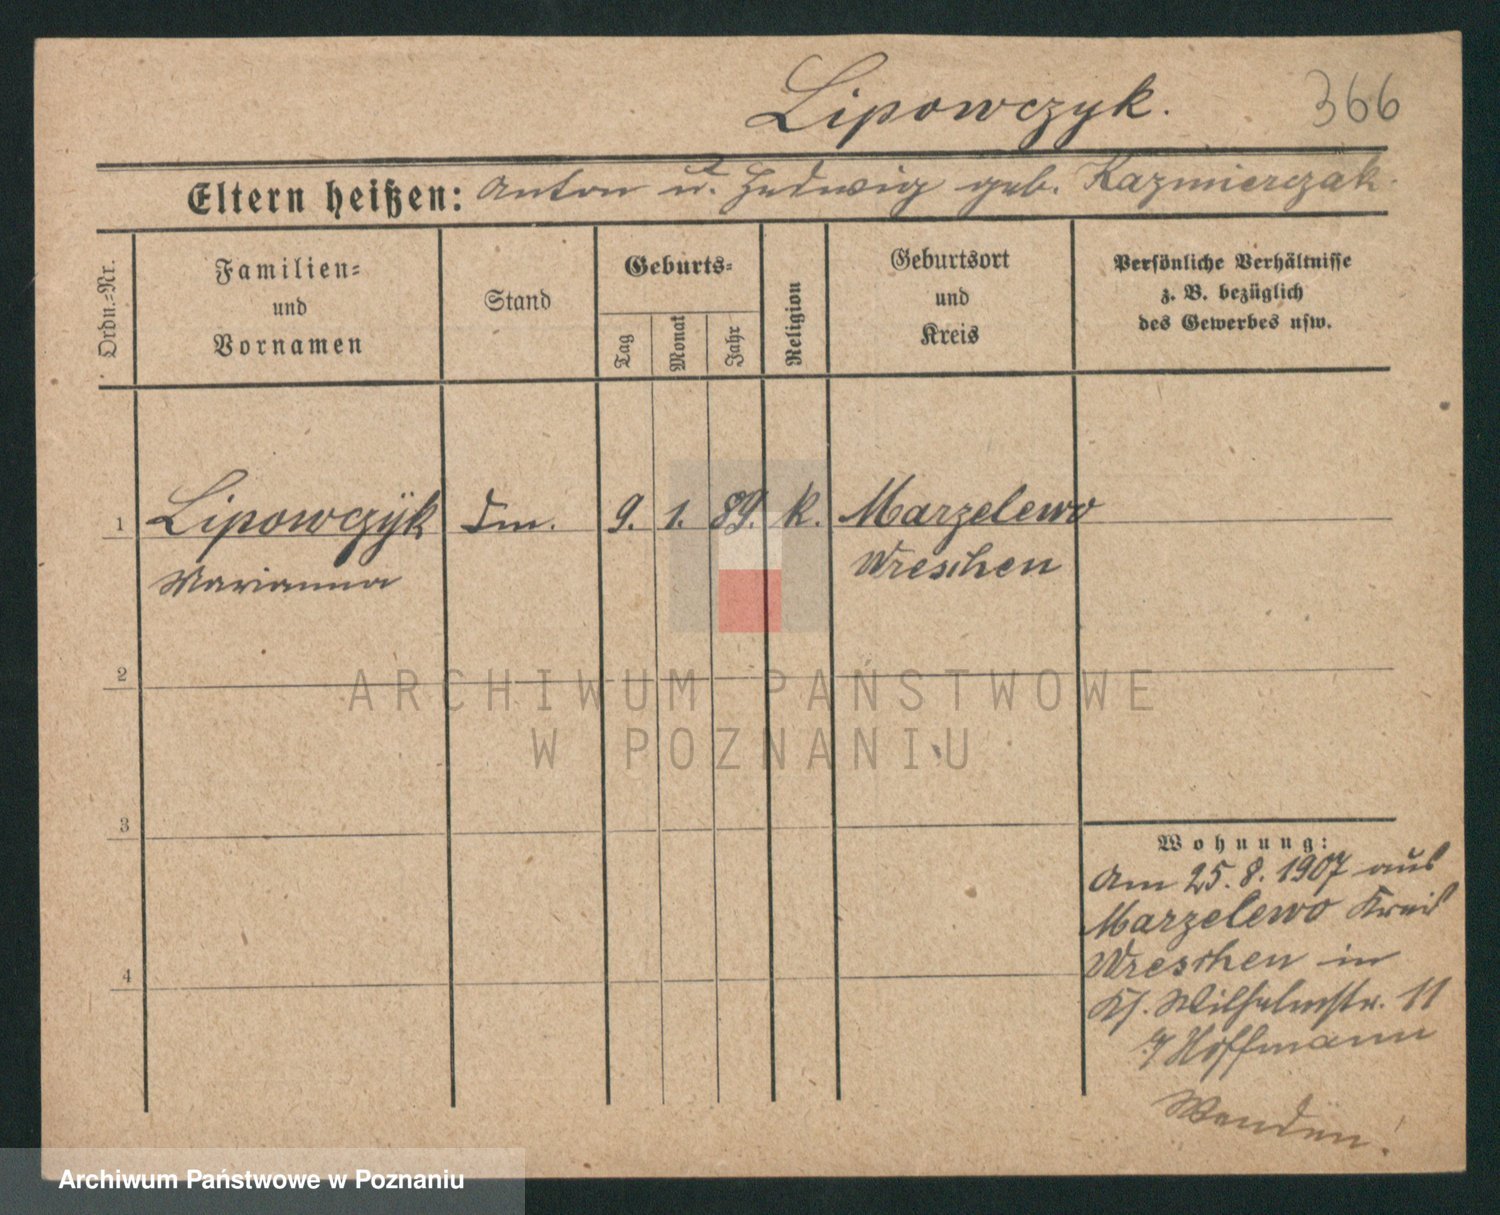 Lipowczyk.
366
Eltern heißen: Anton u. Hedwig geb. Kazmierczak.
Ordn.-Nr.
Familien-
und
Vornamen
Stand
Geburts-
Tag
Monat
Jahr
Religion
Geburtsort
und
Kreis
Persönliche Verhältnisse
z. B. bezüglich
des Gewerbes usw.
1 Lipowczyk 9. 1. 89. k. Marzelewo
Marianna Wreschen
2
3
4
Wohnung:
Am 25. 8. 1907 aus
Marzelewo Kreis
Wreschen in
Wilhelmstr. 11
Hoffmann
ARCHIWUM PAŃSTWOWE
W POZNANIU
Archiwum Państwowe w Poznaniu